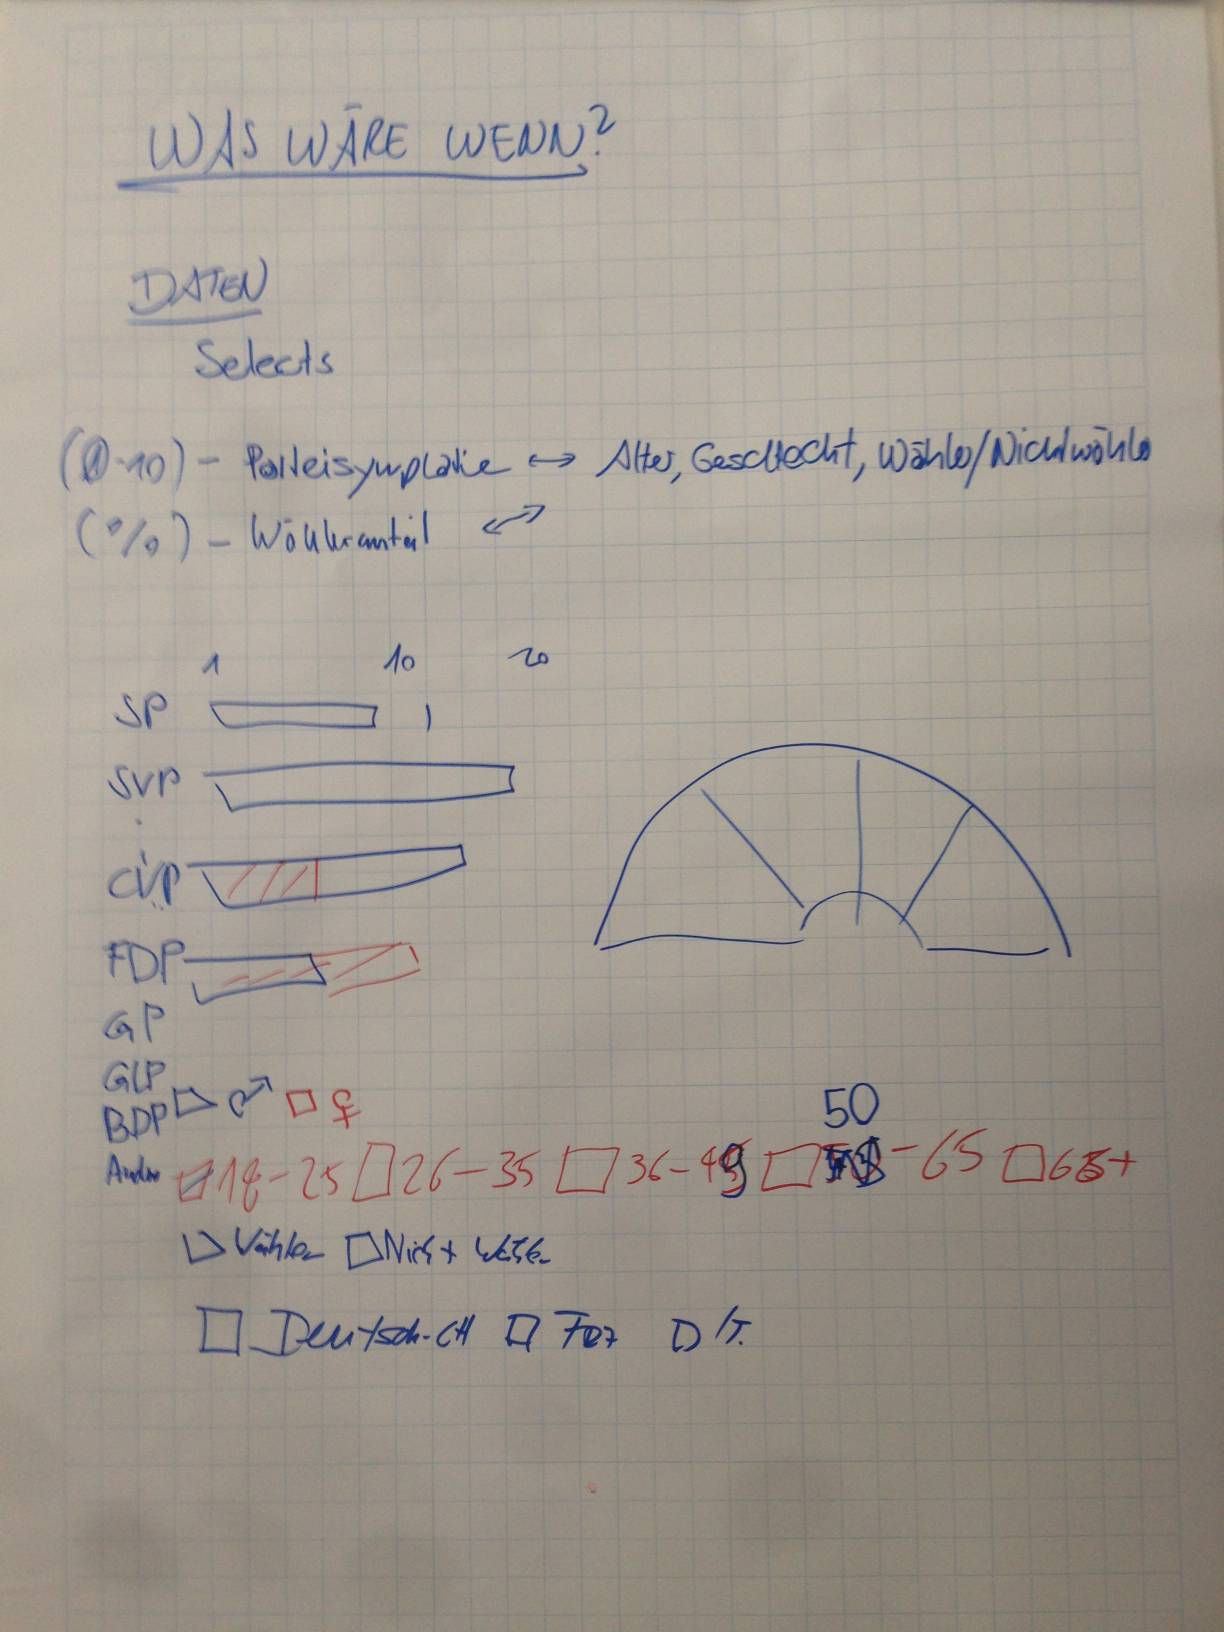 WAS WÄRE WENN?
DATEN
Selects
(0-10) - Parteisympathie ↔ Alter, Geschlecht, Wähler/Nichtwähler
(%) - Wähleranteil ↔
1 10 20
SP
SVP
CVP
FDP
GP
GLP
BDP ♂ ♀
50
Andere 18-25 26-35 36-49 -65 65+
Wähler Nicht Wähler
Deutsch-CH Frz D/I.